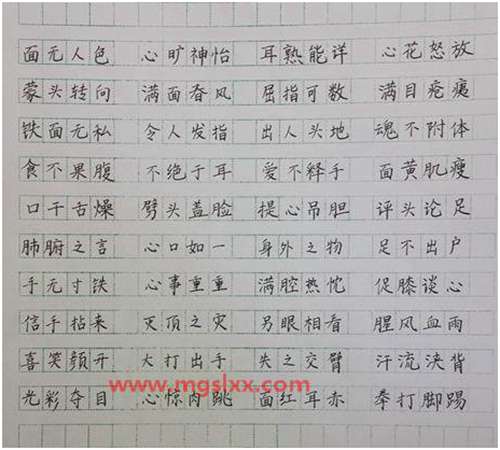 面无人色 心旷神怡 耳熟能详 心花怒放
蒙头转向 满面春风 屈指可数 满目疮痍
铁面无私 令人发指 出人头地 魂不附体
食不果腹 不绝于耳 爱不释手 面黄肌瘦
口干舌燥 劈头盖脸 提心吊胆 评头论足
肺腑之言 心口如一 身外之物 足不出户
手无寸铁 心事重重 满腔热忱 促膝谈心
信手拈来 灭顶之灾 另眼相看 腥风血雨
喜笑颜开 大打出手 失之交臂 汗流浃背
www.mgslxx.com
光彩夺目 心惊肉跳 面红耳赤 拳打脚踢